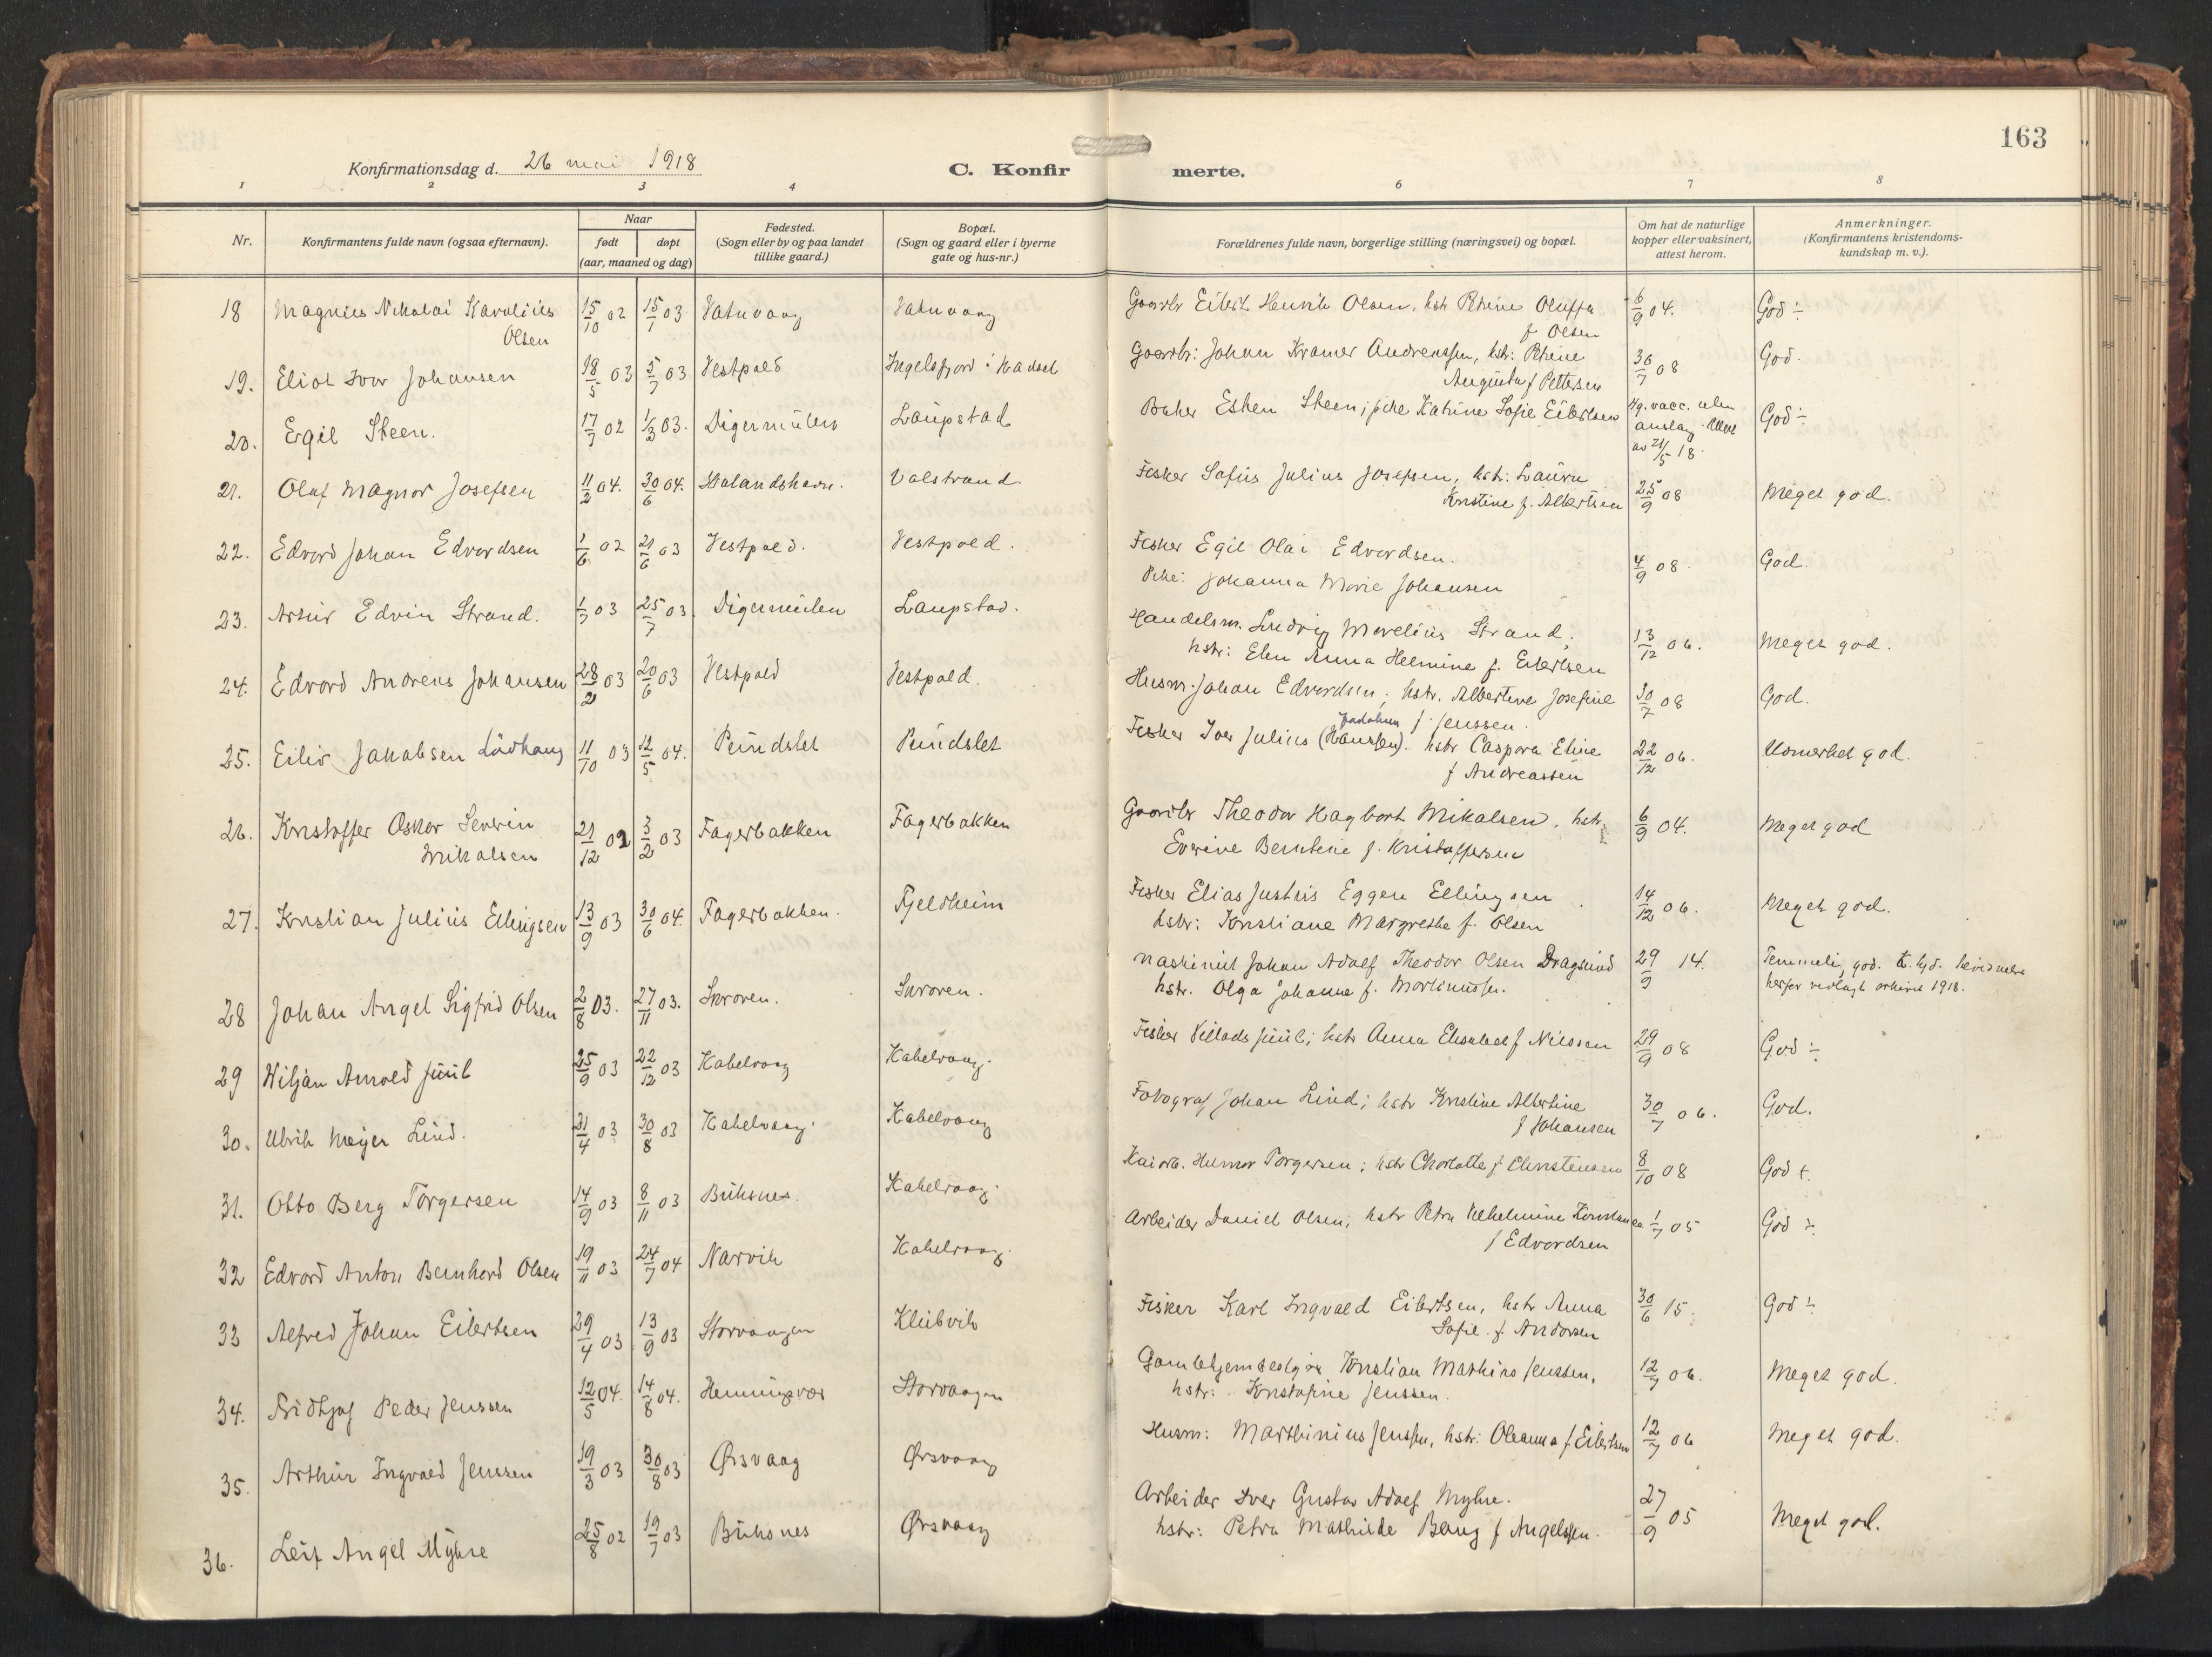 163
Konfirmationsdag d. 26 mai 1918
C. Konfirmerte.
1 2 3 4 6 7 8
Nr.
Konfirmantens fulde navn (ogsaa efternavn).
Naar
født
døpt
(aar, maaned og dag)
Fødested.
(Sogn eller by og paa landet
tillike gaard.)
Bopæl.
(Sogn og gaard eller i byerne
gate og hus-nr.)
Forældrenes fulde navn, borgerlige stilling (næringsvei) og bopæl.
Om hat de naturlige
kopper eller vaksinert,
attest herom.
Anmerkninger.
(Konfirmantens kristendoms-
kundskap m. v.).
18 Magnus Nikolai Karolius 15/10 02 15/1 03 Vatnvaag Vatnvaag Gaardbr Eilert Henrik Olsen, hstr Petrine Oluffa 6/9 04. God ÷
Olsen f Olsen
19. Eliot Ivar Johansen 18/5 03 5/7 03 Vestpold Ingelsfjord i Hadsel Gaardbr: Johan Kramer Andreassen, hstr: Petrine 30/7 08 God.
Augusta f Pettersen
20. Egil Steen. 17/7 02 1/3 03. Digermulen Laupstad Baker Esten Steen; pike Katrine Sofie Eilertsen Hg. vacc. uten God ÷
anslag. Attest
av 21/5 18.
21. Olaf Magnor Josefsen 11/2 04. 30/6 04. Valstrand. Fisker Sofus Julius Josefsen, hstr: Laura 25/9 08 Meget god.
Kristine f. Albertsen
22. Edvard Johan Edvardsen 1/6 02 21/6 03 Vestpold. Vestpold. Fisker Egil Olai Edvardsen. 4/9 08. God.
Pike: Johanna Marie Johansen
23. Artur Edvin Strand. 1/7 03 25/7 03. Digermulen Laupstad. Handelsm. Ludvig Morelius Strand, 13/12 06. Meget god.
hstr: Elen Anna Helmine f. Eilertsen
24. Edvard Andreas Johansen 28/2 03 20/6 03 Vestpold Vestpold. Husm. Johan Edvardsen, hstr. Albertine Josefine 30/7 08 God.
f. Jenssen.
25. Eilif Jakobsen Lødhaug 11/10 03 12/5 04. Pundslet Pundslet Fisker Iver Julius (Hanssen). hstr Caspara Eline 22/12 06. Usmerket god.
f Andreassen
26. Kristoffer Oskar Severin 21/12 02 3/2 03 Fagerbakken Fagerbakken Gaardbr Theodor Hagbart Mikalsen, hstr. 6/9 04. Meget god
Mikalsen Everine Berntine f. Kristoffersen
27. Kristian Julius Ellingsen 13/9 03 30/6 04. Fagerbakken. Fjeldheim Fisker Elias Justnis Eggen Ellingsen 14/12 06. Meget god.
hstr: Kristiane Margrethe f. Olsen
28 Johan Angel Sigfrid Olsen 2/8 03. 27/11 03. Skroven. Skroven. Maskinist Johan Adolf Theodor Olsen Dragsund 29/9 14. god.
hstr. Olga Johanne f. Martinussen. herfor vedlagt arkivet 1918.
29 Wiljan Arnold Juul 25/9 03 22/12 03 Kabelvaag Kabelvaag. Fisker Villads Juul; hstr Anna Elisabeth f Nilssen 29/9 08 God ÷
30. Ulrik Meyer Lind. 21/4 03 30/8 03 Kabelvaag. Kabelvaag Fotograf Johan Lind; hstr Kristine Albertine 30/7 06. God.
f Johansen
31. Otto Berg Torgersen 14/9 03 8/11 03 Buksnes. Kabelvaag. Torgersen; hstr Charlotte f Christensen 8/10 08 God +.
32 Edvard Anton Bernhard Olsen 19/11 03 24/7 04 Narvik Kabelvaag. Arbeider Daniel Olsen, hstr Petra Vilhelmine Konstanse 1/7 05 God ÷
f Edvardsen
33 Alfred Johan Eilertsen 29/4 03 13/9 03 Storvaagen Klubvik Fisker Karl Ingvald Eilertsen, hstr Anna 30/6 15. God ÷
Sofie f. Andorsen
34. Fridtjof Peder Jenssen 12/5 04. 14/8 04. Henningsvær Storvaagen Gamlehjemsbestyrer Kristian Mathias Jenssen, 12/7 06. Meget god.
hstr: Kristofine Jenssen.
35. Arthur Ingvald Jenssen 19/3 03 30/8 03 Ørsvaag Ørsvaag Husm: Marthinius Jenssen, hstr: Oleanna f Eilertsen 12/7 06 Meget god.
36. Leif Angel Myhre 25/8 02 19/7 03 Buksnes Ørsvaag Arbeider Iver Gustav Adolf Myhre. 27/9 05 Meget god.
hstr: Petra Mathilde Baug f Angelsen.